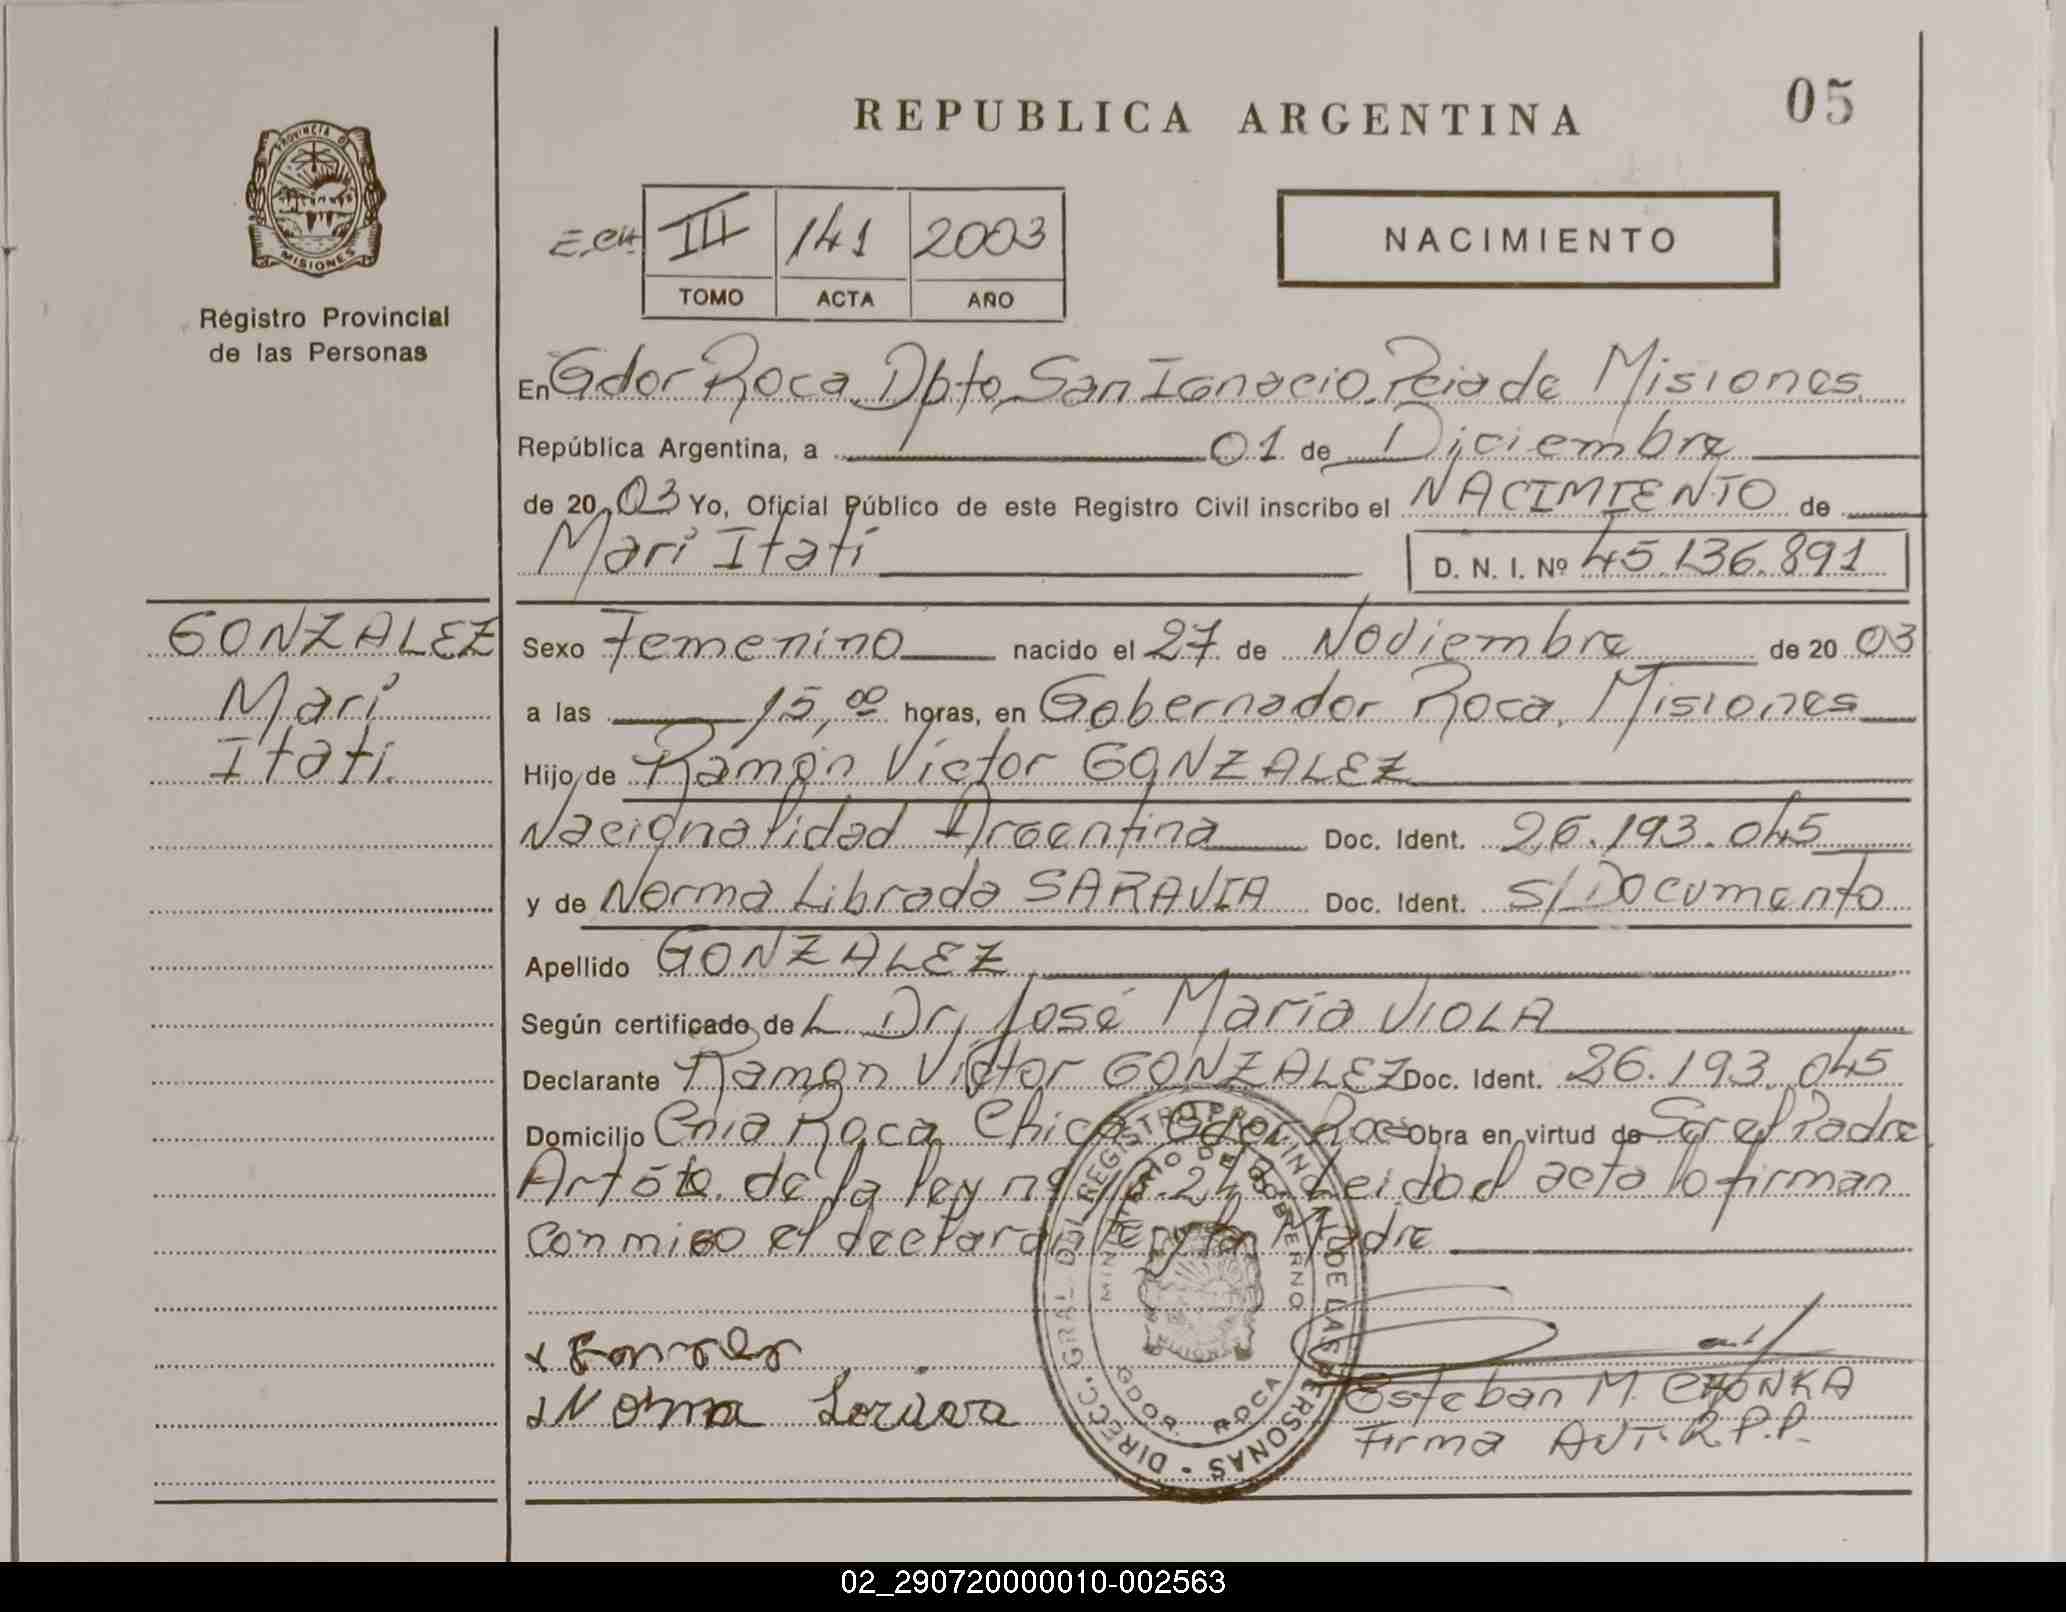 REPUBLICA ARGENTINA
05
PROVINCIA D
MISIONES
Régistro Provincial
de las Personas
E.CH. III 141 2003
TOMO ACTA AÑO
NACIMIENTO
En Gdor Roca, Dpto, San Ignacio, Pcia de Misiones
República Argentina, a 01 de Diciembre
de 2003 Yo, Oficial Público de este Registro Civil inscribo el NACIMIENTO de
Mari Itatí
D. N. I. Nº 45.136.891
GONZALEZ
Mari
Itatí
Sexo Femenino nacido el 27 de Noviembre de 2003
a las 15,00 horas, en Gobernador Roca, Misiones
Hijo de Ramón Victor GONZALEZ
Nacionalidad Argentina Doc. Ident. 26.193.045
y de Norma Librada SARAVIA Doc. Ident. S/Documento
Apellido GONZALEZ
Según certificado de L Dr, José María VIOLA
Declarante Ramón Victor GONZALEZ Doc. Ident. 26.193.045
Domicilio Cnia Roca Chica Gdor, Roca Obra en virtud de Ser el Padre
de la ley nº Leida el acta lo firman
conmigo el declarante y la Madre
Norma
Esteban M. CHONKA
Firma AUT. R.P.P.
DIRECC. GRAL. DEL REGISTRO PROVINCIAL DE LAS PERSONAS
MINISTERIO DE GOBIERNO
GDOR. ROCA
02_290720000010-002563